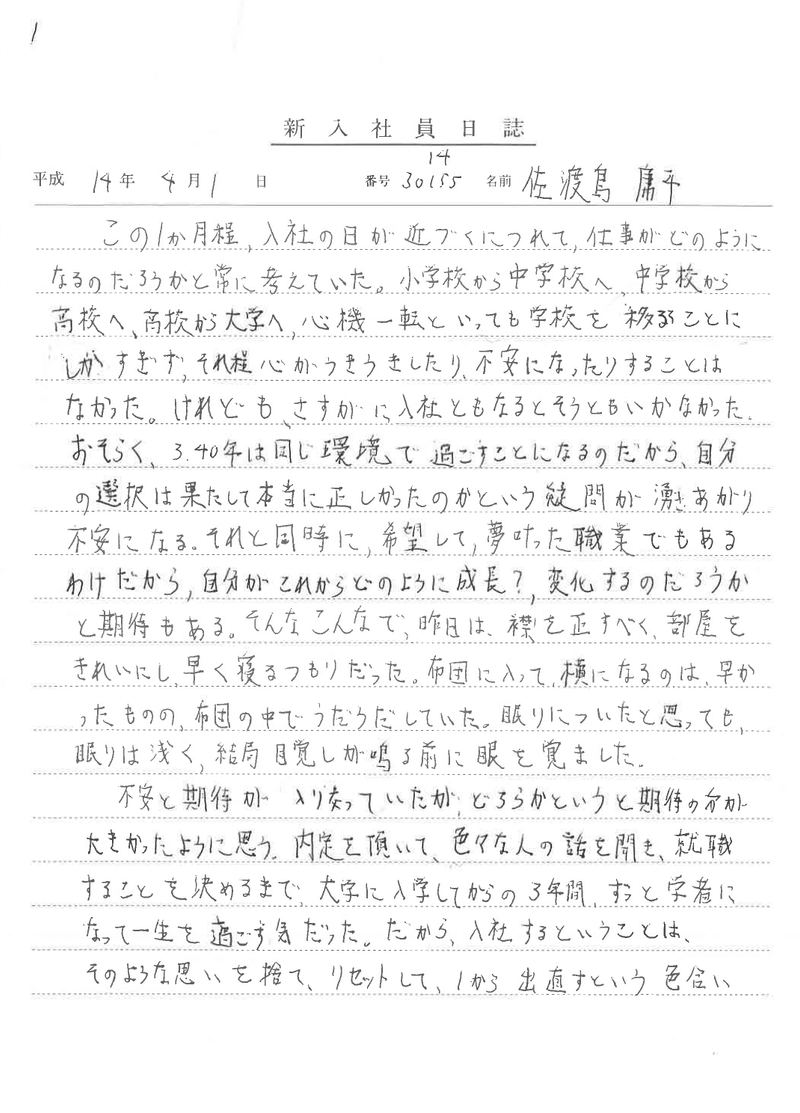 1
新入社員日誌
14
平成 14年 4月1日 番号 30155 名前 佐渡島 庸平
この1か月程、入社の日が近づくにつれて、仕事がどのように
なるのだろうかと常に考えていた。小学校から中学校へ、中学校から
高校へ、高校から大学へ、心機一転といっても学校を移ることに
しかすぎず、それ程心がうきうきしたり、不安になったりすることは
なかった。けれども、さすがに入社ともなるとそうともいかなかった。
おそらく、3.40年は同じ環境で過ごすことになるのだから、自分
の選択は果たして本当に正しかったのかという疑問が湧きあがり
不安になる。それと同時に、希望して、夢叶った職業でもある
わけだから、自分がこれからどのように成長?、変化するのだろうか
と期待もある。そんなこんなで、昨日は、襟を正すべく、部屋を
きれいにし、早く寝るつもりだった。布団に入って、横になるのは、早か
ったものの、布団の中でうだうだしていた。眠りについたと思っても、
眠りは浅く、結局目覚しが鳴る前に眼を覚ました。
不安と期待が入り交っていたが、どちらかというと期待の分が
大きかったように思う。内定を頂いて、色々な人の話を聞き、就職
することを決めるまで、大学に入学してからの3年間、ずっと学者に
なって一生を過ごす気だった。だから、入社するということは、
そのような思いを捨て、リセットして、1から出直すという色合い